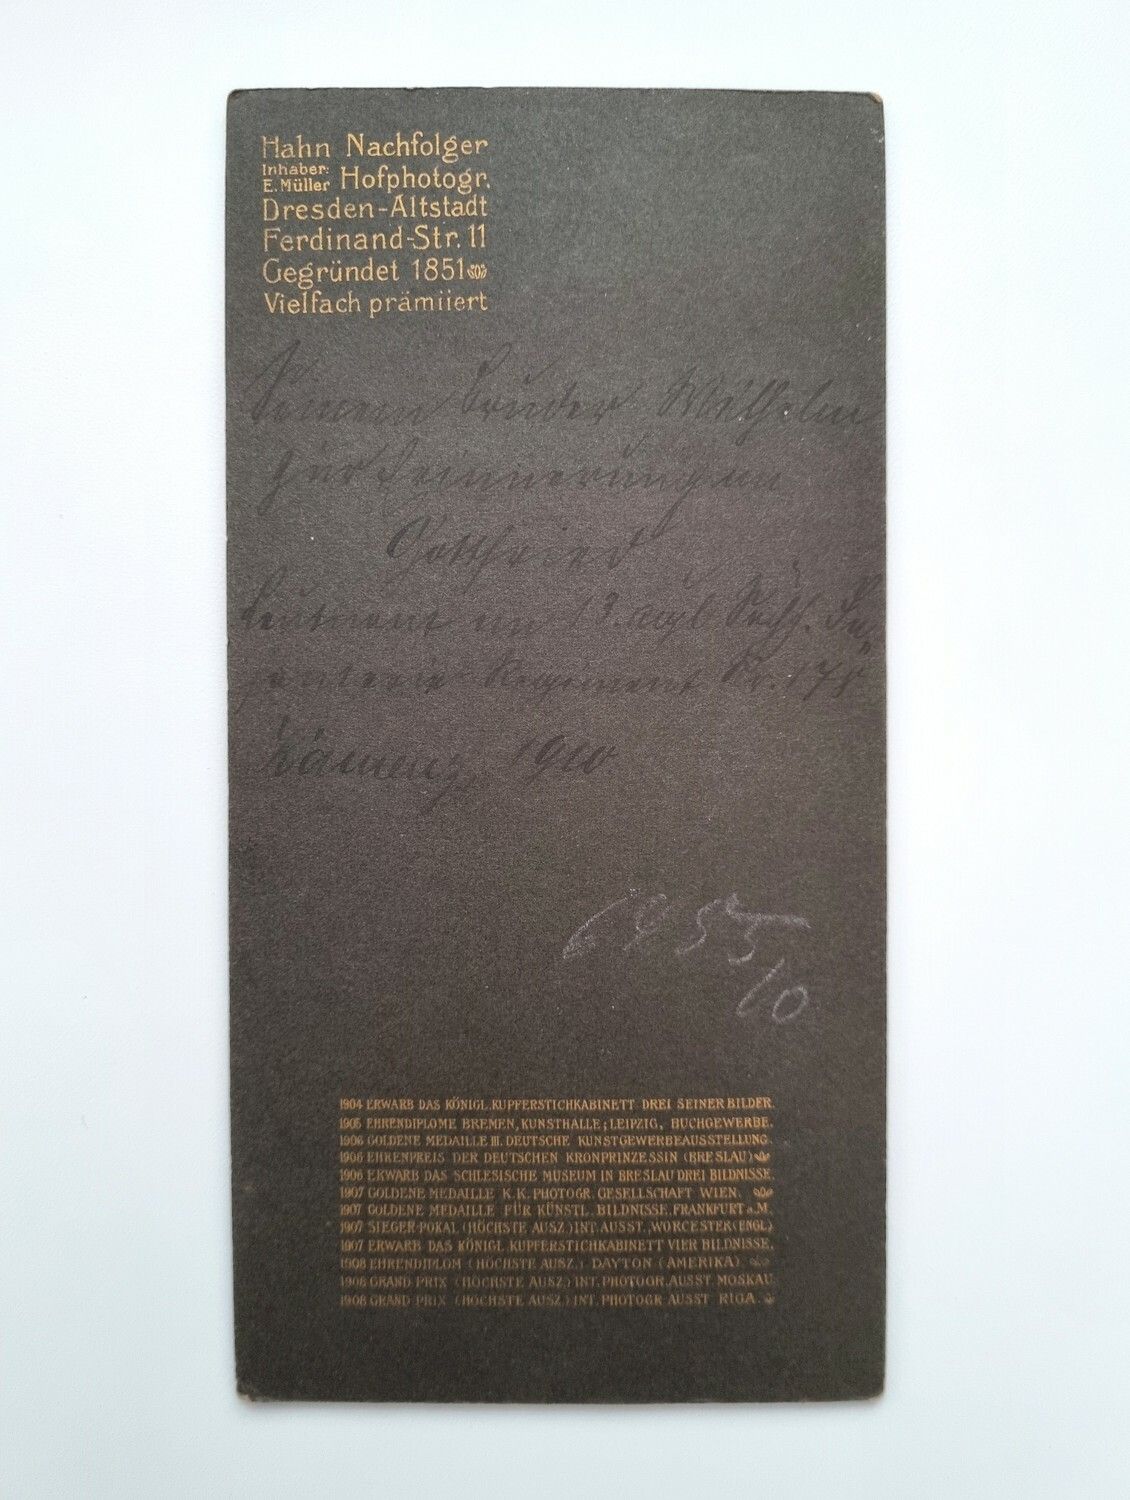 Hahn Nachfolger
Inhaber:
E. Müller Hofphotogr.
Dresden-Altstadt
Ferdinand-Str. 11
Gegründet 1851
Vielfach prämiiert
Seinem Bruder Wilhelm
zur Erinnerung an
Gottfried
Leutnant im 13. Kgl. Sächs. In-
fanterie Regiment Nr. 178
Kamenz, 1910
6955
10
1904 ERWARB DAS KÖNIGL. KUPFERSTICHKABINETT DREI SEINER BILDER.
1905 EHRENDIPLOME BREMEN, KUNSTHALLE; LEIPZIG, BUCHGEWERBE.
1906 GOLDENE MEDAILLE III. DEUTSCHE KUNSTGEWERBEAUSSTELLUNG.
1906 EHRENPREIS DER DEUTSCHEN KRONPRINZESSIN (BRESLAU)
1906 ERWARB DAS SCHLESISCHE MUSEUM IN BRESLAU DREI BILDNISSE.
1907 GOLDENE MEDAILLE K. K. PHOTOGR. GESELLSCHAFT WIEN.
1907 GOLDENE MEDAILLE FÜR KÜNSTL. BILDNISSE, FRANKFURT a. M.
1907 SIEGER-POKAL (HÖCHSTE AUSZ.) INT. AUSST., WORCESTER (ENGL.)
1907 ERWARB DAS KÖNIGL. KUPFERSTICHKABINETT VIER BILDNISSE.
1908 EHRENDIPLOM (HÖCHSTE AUSZ.) DAYTON (AMERIKA).
1908 GRAND PRIX (HÖCHSTE AUSZ.) INT. PHOTOGR. AUSST. MOSKAU.
1908 GRAND PRIX (HÖCHSTE AUSZ.) INT. PHOTOGR. AUSST. RIGA.